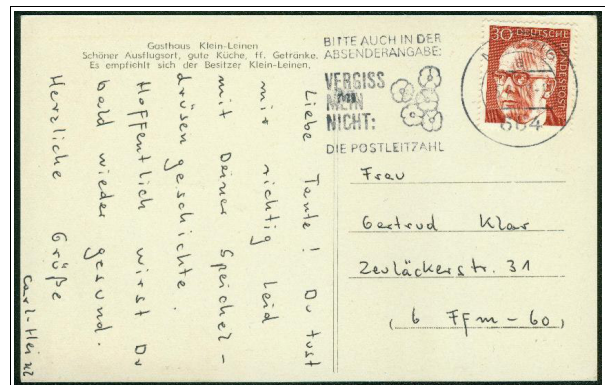 Gasthaus Klein-Leinen
Schöner Ausflugsort, gute Küche, ff. Getränke.
Es empfiehlt sich der Besitzer Klein-Leinen,
BITTE AUCH IN DER
ABSENDERANGABE:
VERGISS
MEIN
NICHT:
DIE POSTLEITZAHL
30 DEUTSCHE
BUNDESPOST
664
Liebe Tante! Du tust
mir richtig leid
mit Deiner Speichel-
drüsengeschichte.
Hoffentlich wirst Du
bald wieder gesund.
Herzliche Grüße
Carl-Heinz
Frau
Gertrud Klar
Zeuläckerstr. 31
(6 Ffm-60)